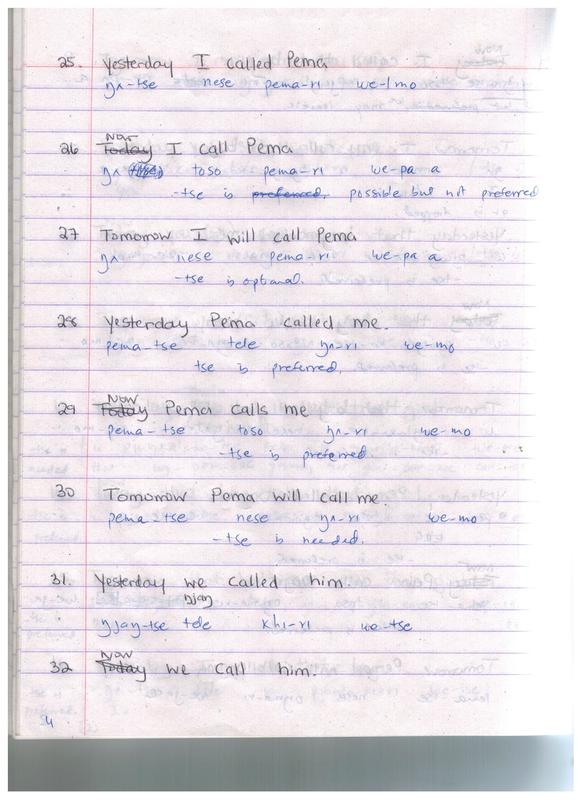 25. Yesterday I called Pema
ŋʌ-tse nese pema-ri we-lmo
26 Now Today I call Pema
ŋʌ toso pema-ri we-pa a
-tse is preferred, possible but not preferred
27 Tomorrow I will call Pema
ŋʌ nese pema-ri we-pa a
-tse is optional.
28 Yesterday Pema called me.
pema-tse tele ŋʌ-ri we-mo
tse is preferred,
29 Now Today Pema calls me
pema-tse toso ŋʌ-ri we-mo
-tse is preferred
30 Tomorrow Pema will call me.
pema-tse nese ŋʌ-ri we-mo
-tse is needed.
31. Yesterday we called him.
ŋjaŋ
ŋjaŋ-tse tele khi-ri we-tse
32 Now Today we call him.
54